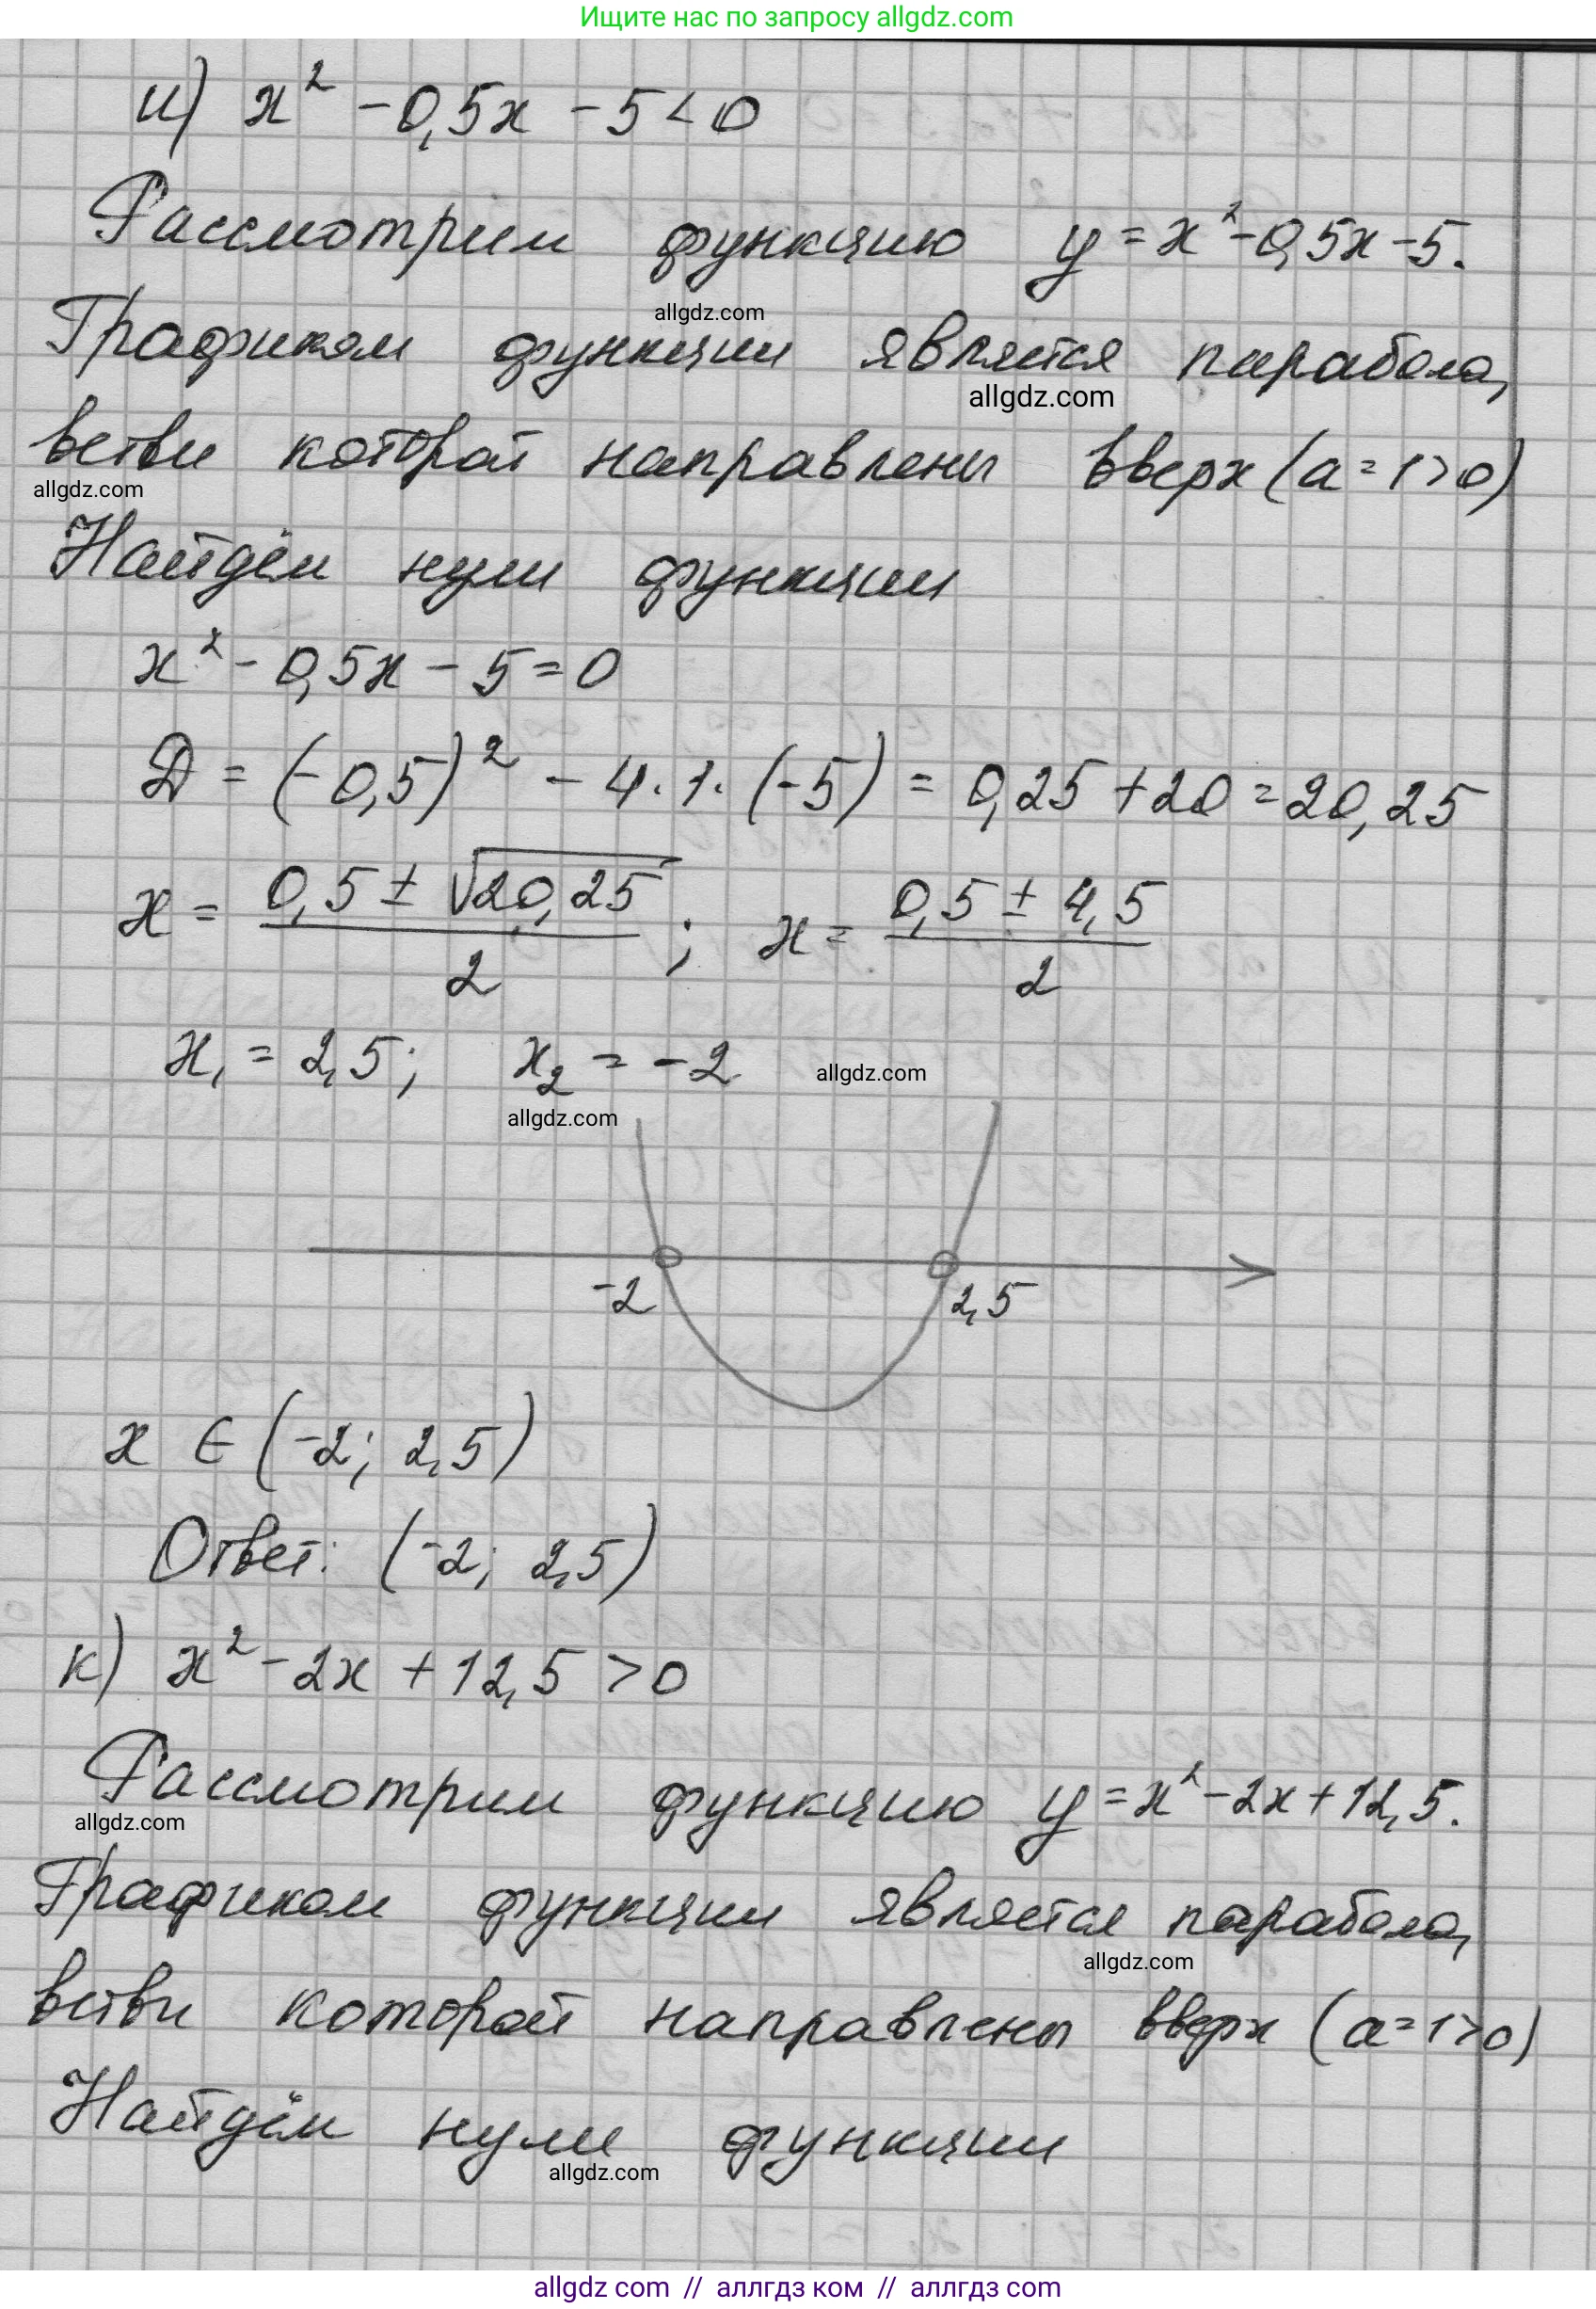 Ищите нас по запросу allgdz.com
и) x² - 0,5x - 5 < 0
Рассмотрим функцию y = x² - 0,5x - 5.
allgdz.com
Графиком функции является парабола,
allgdz.com
ветви которой направлены вверх (a = 1 > 0)
allgdz.com
Найдём нули функции
x² - 0,5x - 5 = 0
D = (-0,5)² - 4 · 1 · (-5) = 0,25 + 20 = 20,25
x = (0,5 ± √20,25)/2 ; x = (0,5 ± 4,5)/2
x₁ = 2,5; x₂ = -2
allgdz.com
allgdz.com
-2 2,5
x ∈ (-2; 2,5)
Ответ: (-2; 2,5)
к) x² - 2x + 12,5 > 0
Рассмотрим функцию y = x² - 2x + 12,5.
allgdz.com
Графиком функции является парабола,
allgdz.com
ветви которой направлены вверх (a = 1 > 0)
Найдём нули функции
allgdz.com
allgdz com // аллгдз ком // аллгдз com